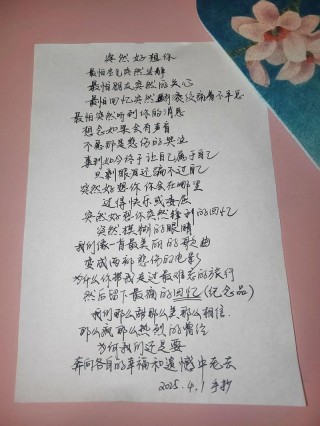 突然好想你
最怕空气突然安静
最怕朋友突然的关心
最怕回忆突然翻滚绞痛着不平息
最怕突然听到你的消息
想念如果会有声音
不愿那是悲伤的哭泣
事到如今终于让自己属于自己
只剩眼泪还骗不过自己
突然好想你你会在哪里
过得快乐或委屈
突然好想你突然锋利的回忆
突然模糊的眼睛
我们像一首最美丽的歌曲
变成两部悲伤的电影
为什么你带我走过最难忘的旅行
然后留下最痛的回忆(纪念品)
我们那么甜那么美那么相信
那么疯那么热烈的曾经
为何我们还是要
奔向各自的幸福和遗憾中老去
2025.4.1手抄